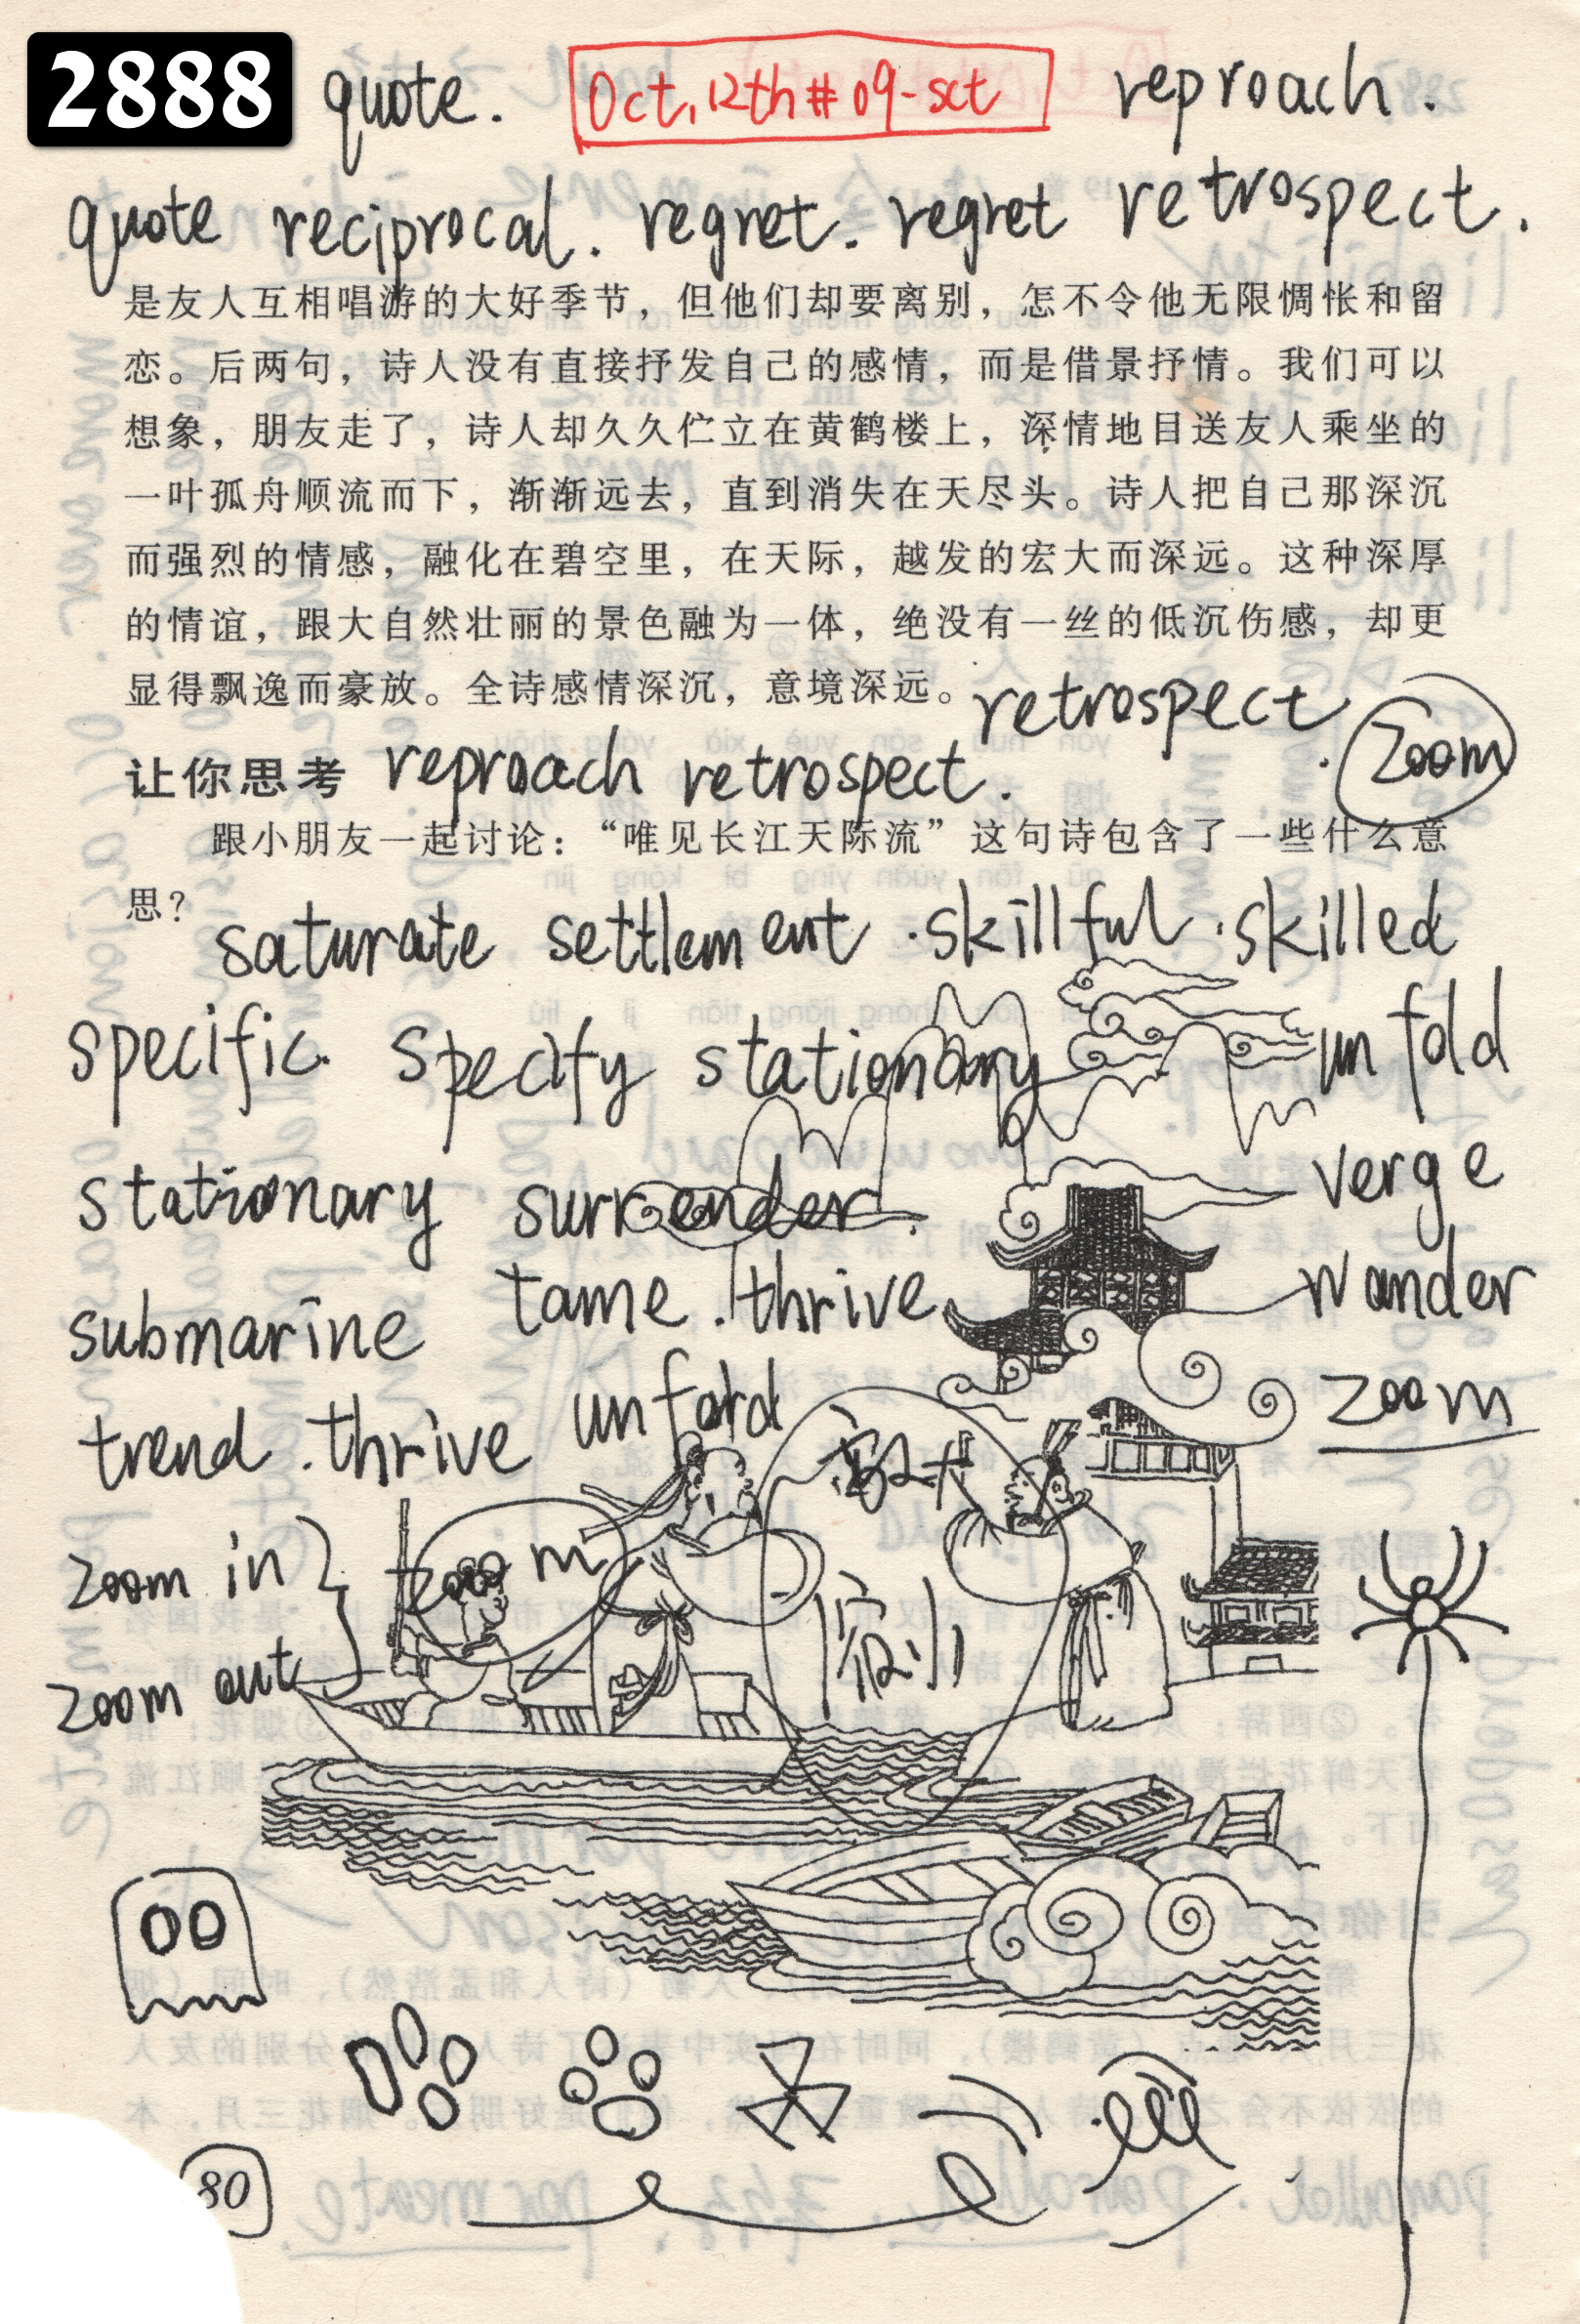 2888 quote. Oct, 12th # 09-sct reproach.
quote reciprocal. regret. regret retrospect.
是友人互相唱游的大好季节，但他们却要离别，怎不令他无限惆怅和留
恋。后两句，诗人没有直接抒发自己的感情，而是借景抒情。我们可以
想象，朋友走了，诗人却久久伫立在黄鹤楼上，深情地目送友人乘坐的
一叶孤舟顺流而下，渐渐远去，直到消失在天尽头。诗人把自己那深沉
而强烈的情感，融化在碧空里，在天际，越发的宏大而深远。这种深厚
的情谊，跟大自然壮丽的景色融为一体，绝没有一丝的低沉伤感，却更
显得飘逸而豪放。全诗感情深沉，意境深远。
retrospect. zoom
让你思考 reproach retrospect.
跟小朋友一起讨论：“唯见长江天际流”这句诗包含了一些什么意
思？
saturate settlement . skillful . skilled
specific. specify stationary unfold
stationary surrender. verge
submarine tame . thrive wander
trend . thrive unfold zoom
zoom in zoom
zoom out
80